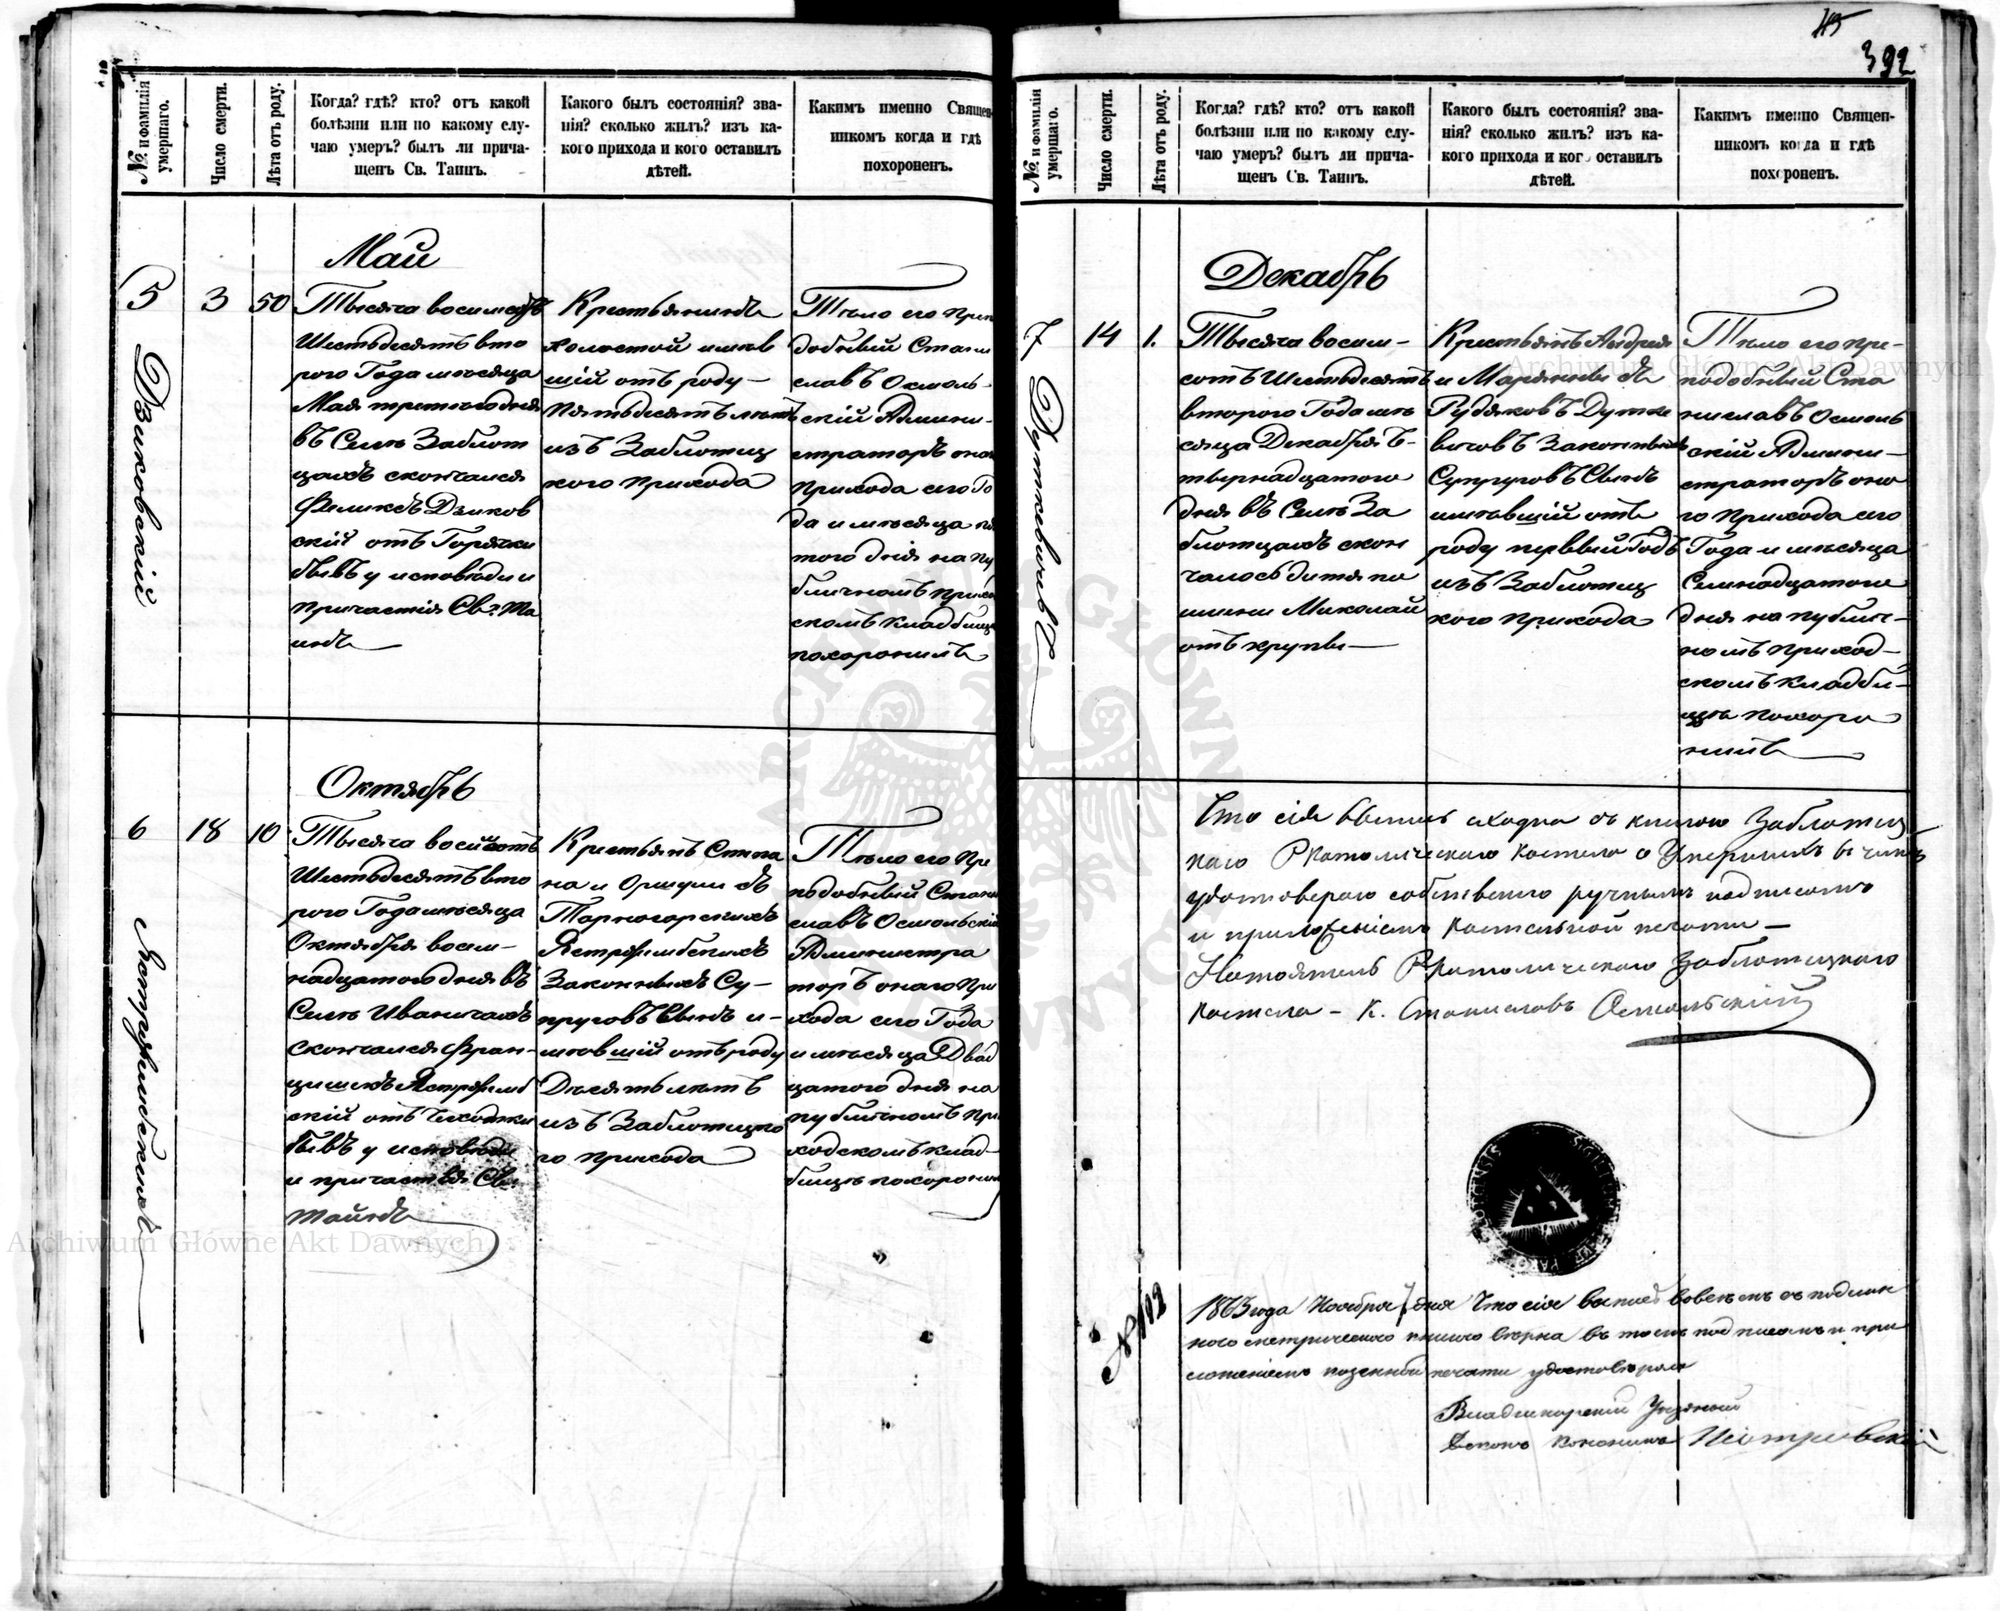 45
392
№ и фамилія умершаго.
Число смерти.
Лѣта отъ роду.
Когда? гдѣ? кто? отъ какой
болѣзни или по какому слу-
чаю умеръ? былъ ли прича-
щенъ Св. Таинъ.
Какого былъ состоянія? зва-
нія? сколько жилъ? изъ ка-
кого прихода и кого оставилъ
дѣтей.
Какимъ именно Священ-
никомъ когда и гдѣ
похороненъ.
5
Дзиковскій
3
50
Май
Тысяча восимсотъ
Шестьдесятъ вто
рого Года мѣсяца
Мая третьяго дня
въ Селѣ Заблот
цахъ скончался
Феликсъ Дзиков
скій отъ Горячки
бывъ у исповѣди и
причастія Св. Та
инъ
Крестьянинъ
холостой имѣв
шій отъ роду
Пятьдесятъ лѣтъ
изъ Заблотиц
кого прихода
Тѣло его Преп
добный Стани
славъ Осмоль
скій Админи-
страторъ она
Прихода сего Го
да и мѣсяца пя
того дня на Пу
бличномъ прихо
скомъ кладбищѣ
похоронилъ
6
18
10
Октябрь
Тысяча восимсотъ
Шестьдесятъ вто
рого Года мѣсяца
Октября восим-
надцатого дня въ
Селѣ Иваничахъ
скончался Фран-
цишекъ Ястрежемб
скій отъ Сухотки
бывъ у исповѣди
и причастія Св.
Тайнъ
Крестьянъ Степа
на и
Тарногорскихъ
Ястрежембскихъ
Законныхъ Су-
пруговъ Сынъ и-
мѣвшій отъ роду
Десять лѣтъ
изъ Заблотицко
го прихода
Тѣло его Пре
подобный Стани
славъ Осмольскій
Администра
торъ онаго При
хода сего Года
и мѣсяца Двад
цатого дня на
публичномъ При
ходскомъ клад-
бищѣ похоронилъ
№ и фамилія умершаго.
Число смерти.
Лѣта отъ роду.
Когда? гдѣ? кто? отъ какой
болѣзни или по какому слу-
чаю умеръ? былъ ли прича-
щенъ Св. Таинъ.
Какого былъ состоянія? зва-
нія? сколько жилъ? изъ ка-
кого прихода и кого оставилъ
дѣтей.
Какимъ именно Священ-
никомъ когда и гдѣ
похороненъ.
7
Дуткевичъ
14
1.
Декабрь
Тысяча восим-
сотъ Шестьдесятъ
второго Года мѣ
сяца Декабря Че-
твернадцатого
дня въ Селѣ За
блотцахъ скон
чалось дитя по
имени Миколай
отъ крупы
Крестьянъ Андрея
и Марянны съ
Рудяковъ Дутке
вичовъ Законныхъ
Супруговъ Сынъ
имѣвшій отъ
роду первый Годъ
изъ Заблотиц
кого прихода
Тѣло его пре-
подобный Ста
ниславъ Осмоль
скій Админи-
страторъ она
го Прихода сего
Года и мѣсяца
Семнадцатого
дня на публич-
номъ Приход-
скомъ кладби-
щѣ похоро
нилъ
Что сія выпись сходна съ книгою Заблотиц
каго Р Католическаго Костела о Умершихъ
удостоверяю собственно ручнымъ подписомъ
и приложеніемъ Костельной печати
Настоятель Р Католическаго Заблотицкаго
Костела - К. Станиславъ Осмольскій
SIGILLUM
№ 112
1863 года Ноября 7 дня Что сія выпись вовсемъ съ подлин
ного метрическою книгою вѣрна въ томъ подписомъ и при
ложеніемъ казенной печати удостовѣряю
Владимирскій Уѣздный
Деканъ Каноникъ
Archiwum Główne Akt Dawnych
Archiwum Główne Akt Dawnych
ARCHIWUM GŁÓWNE AKT DAWNYCH